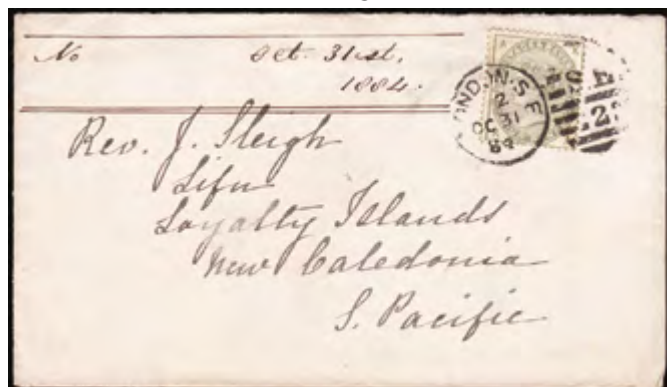 No Oct. 31st,
1884.
LONDON·S.E
2
OC 31
84
S E
2
Rev. J. Sleigh
Lifu
Loyalty Islands
New Caledonia
S. Pacific